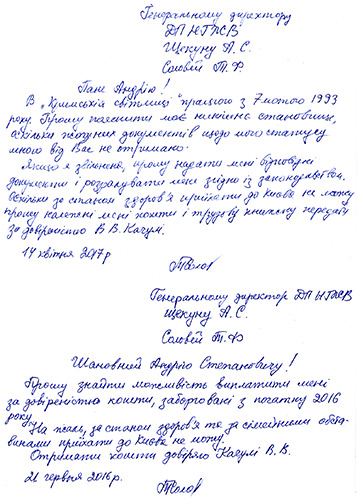 Генеральному директору
ДП НГЖВ
Щекуну А. С.
Соловій Т. Ф.
Пане Андрію!
В "Кримській світлиці" працюю з 7 лютого 1993
року. Прошу пояснити моє нинішнє становище,
оскільки жодних документів щодо мого статусу
мною від Вас не отримано.
Якщо я звільнена, прошу надати мені відповідні
документи і розрахувати мене згідно із законодавством.
Оскільки за станом здоров'я приїхати до Києва не можу
прошу належні мені кошти і трудову книжку передати
за довіреністю В. В. Качулі.
14 квітня 2017 р
Генеральному директор ДП НГЖВ
Щекуну А. С.
Соловій Т. Ф
Шановний Андрію Степановичу!
Прошу знайти можливість виплатити мені
за довіреністю кошти, заборговані з початку 2016
року.
На жаль, за станом здоров'я та за сімейними обста-
винами приїхати до Києва не можу.
Отримати кошти довіряю Качулі В. В.
21 червня 2016 р.